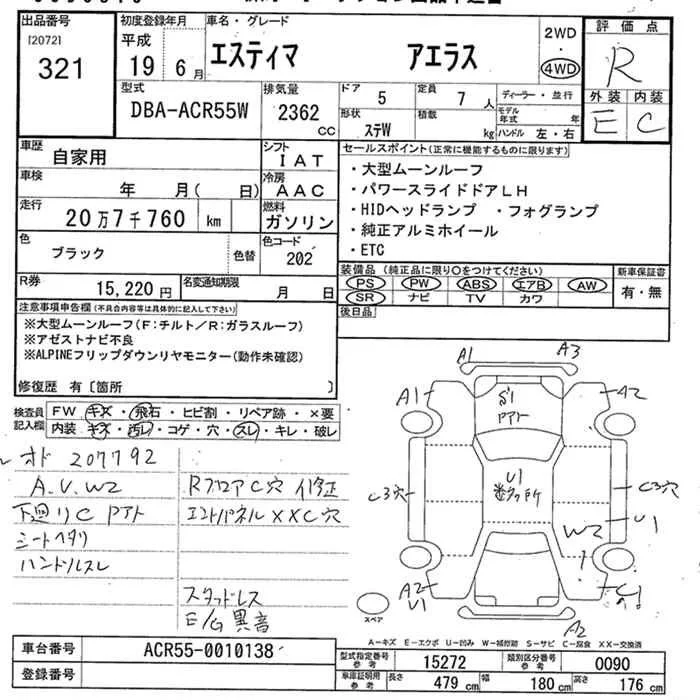 出品番号
[2072]
321
初度登録年月
平成
19 6月
車名・グレード
エスティマ アエラス
2WD
・
4WD
評価点
R
外装 内装
E C
型式
DBA-ACR55W
排気量
2362
CC
ドア
5
定員
7 人
形状
ステW
積載
kg
ディーラー・並行
モデル年式 年
ハンドル 左・右
車歴
自家用
シフト
IAT
車検
年 月( 日)
冷房
AAC
走行
20万7千760 km
燃料
ガソリン
色
ブラック
色替
色コード
202
R券
15,220円
名変通知期限
月 日
セールスポイント(正常に機能するものに限ります)
・大型ムーンルーフ
・パワースライドドアLH
・HIDヘッドランプ ・フォグランプ
・純正アルミホイール
・ETC
装備品(純正品に限り○をつけてください)
PS PW ABS エアB AW
SR ナビ TV カワ
新車保証書
有・無
後日品
注意事項申告欄(不具合内容等は具体的に記入して下さい)
※大型ムーンルーフ(F:チルト/R:ガラスルーフ)
※アゼストナビ不良
※ALPINEフリップダウンリヤモニター(動作未確認)
修復歴 有〔箇所 〕
検査員記入欄
FW キズ・飛石・ヒビ割・リペア跡・×要
内装 キズ・汚レ・コゲ・穴・スレ・キレ・破レ
オド 207792
A.V.W2
下廻りC Pアト
シートヘタリ
ハンドルスレ
RフロアC穴 イ修正
エンドパネルXXC穴
スタッドレス
E/G異音
A1
A3
A1
A2
S1
Pアト
U1
数ヶ所
C3穴
C3穴
U1
W2
A2
U1
C1
A2
スペア
A-キズ E-エクボ U-凹み W-補修跡 S-サビ C-腐食 XX-交換済
車台番号
ACR55-0010138
登録番号
型式指定番号
参考
15272
類別区分番号
参考
0090
車庫証明用
参考
長さ
479 cm
幅
180 cm
高さ
176 cm